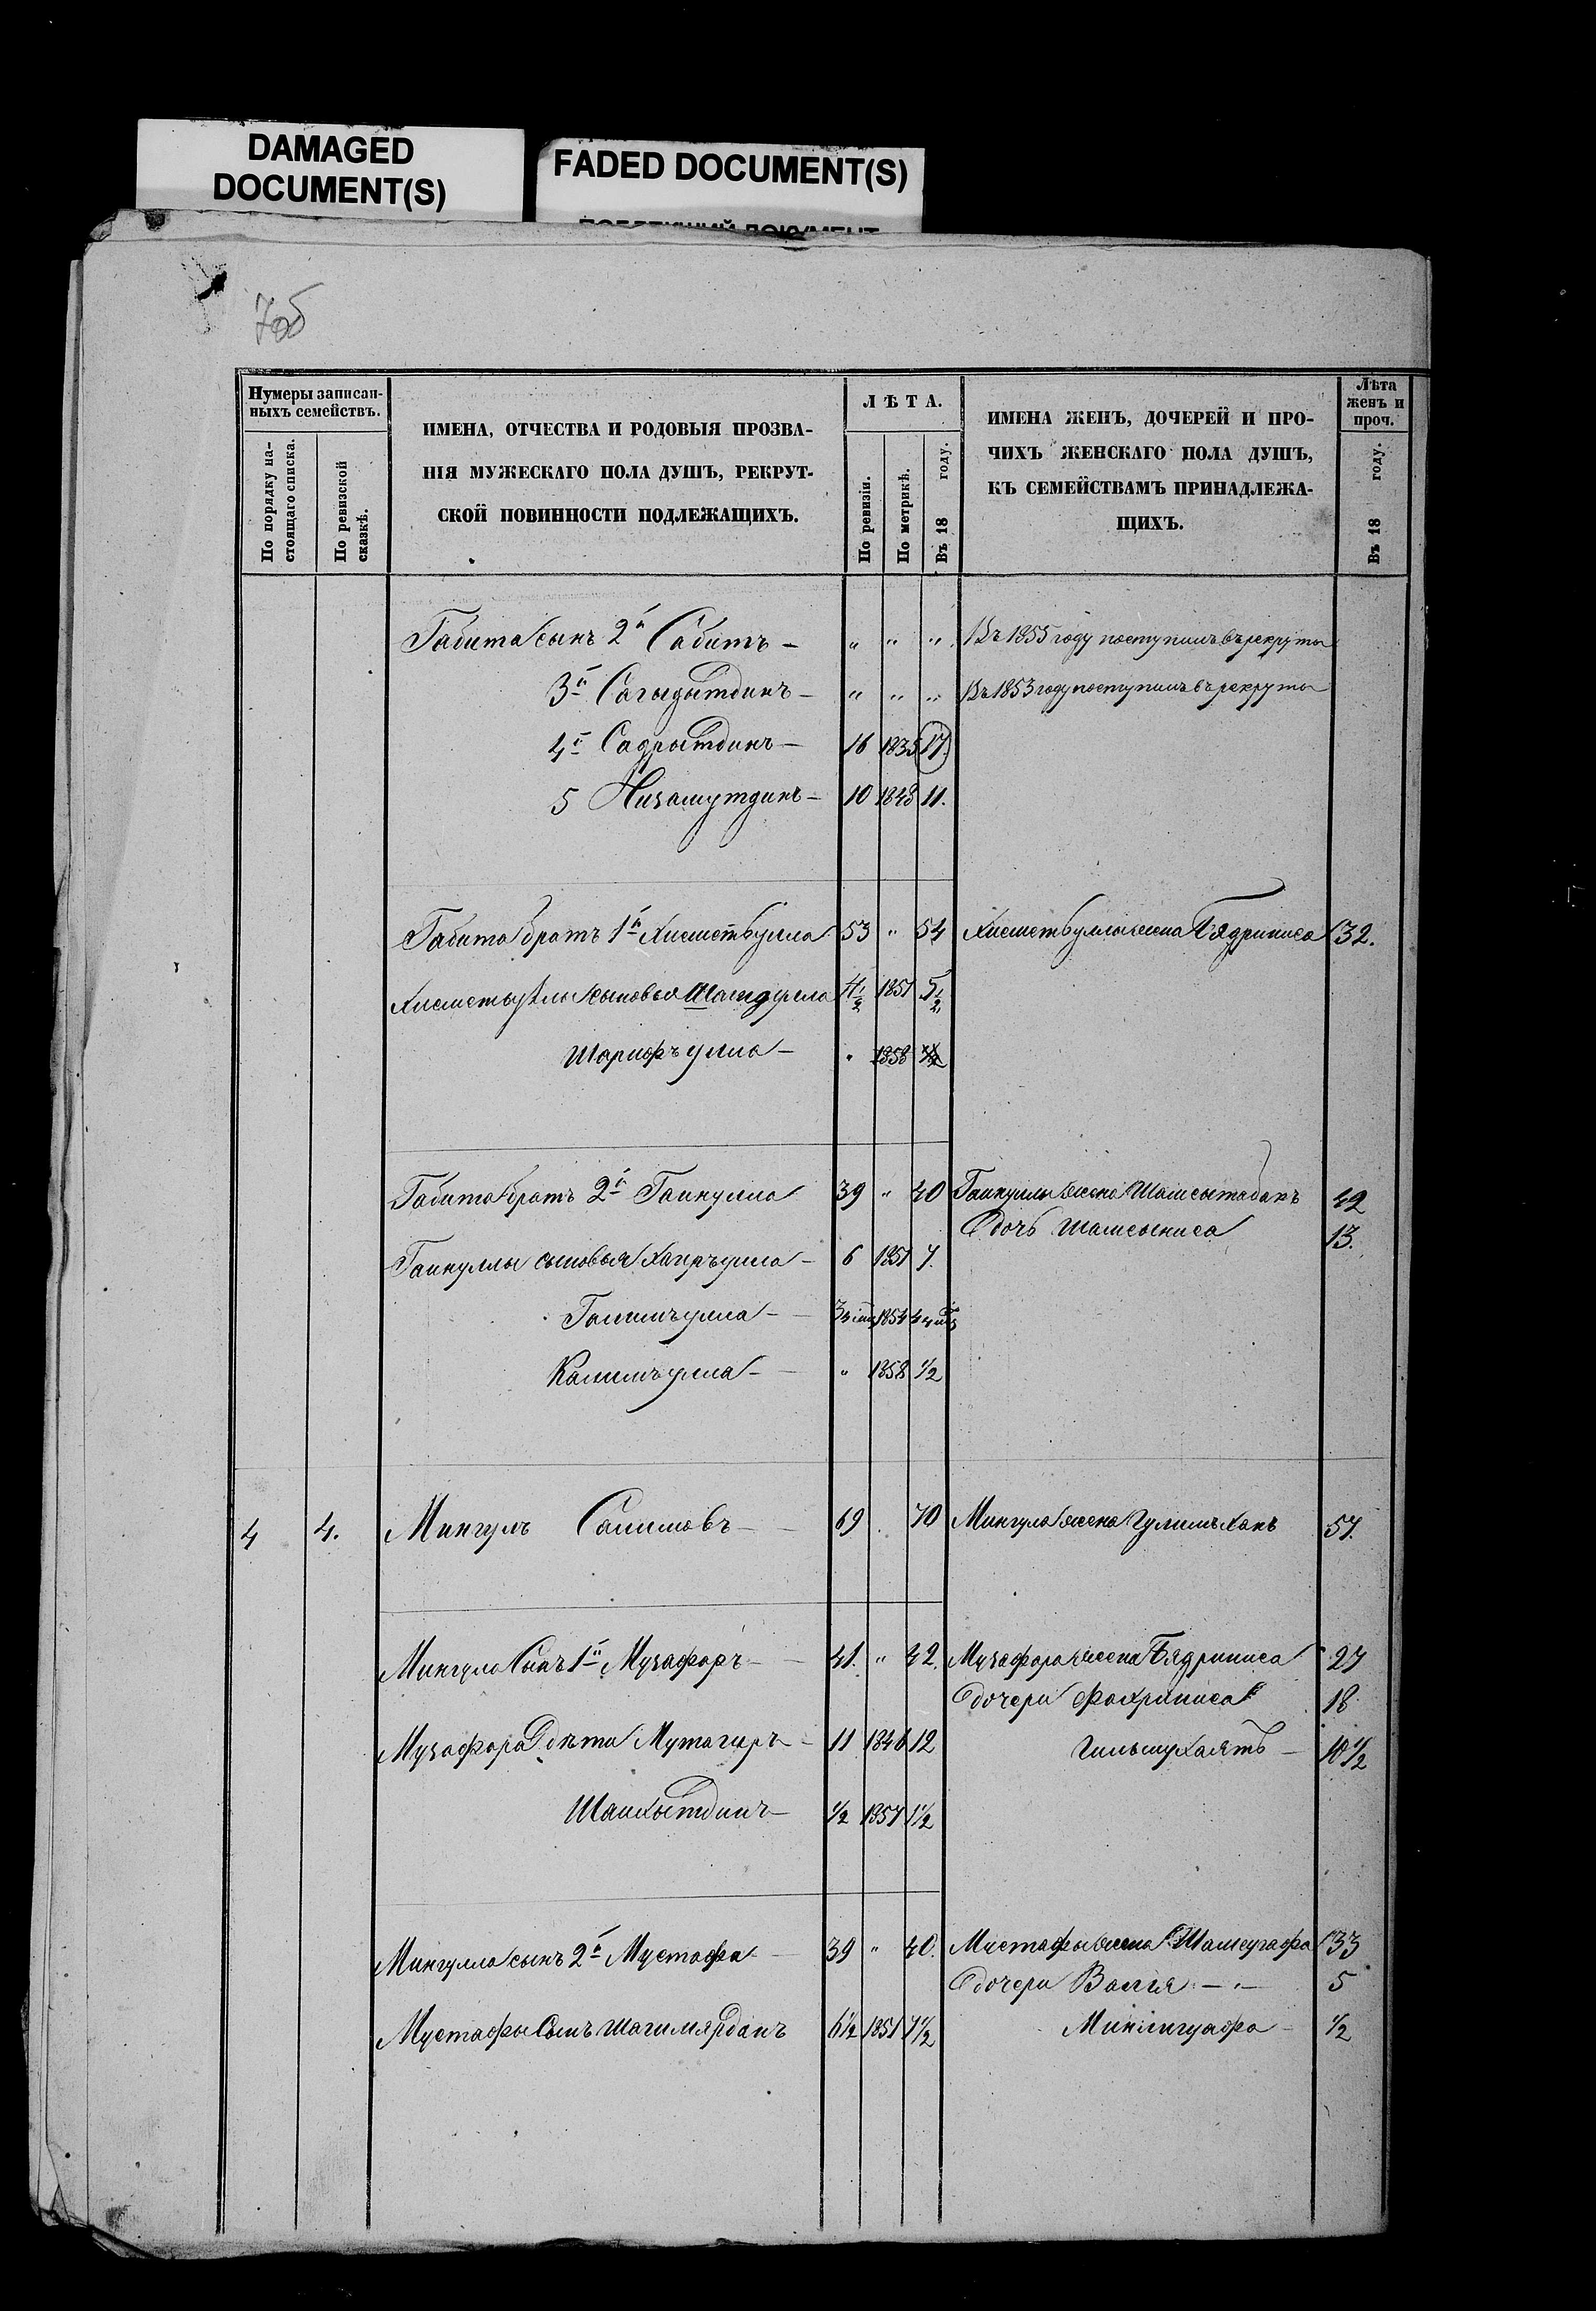 DAMAGED
DOCUMENT(S)
FADED DOCUMENT(S)
7об
Нумеры записан-
ныхъ семействъ.
По порядку на-
стоящаго списка.
По ревизской
сказкѣ.
ИМЕНА, ОТЧЕСТВА И РОДОВЫЯ ПРОЗВА-
НІЯ МУЖЕСКАГО ПОЛА ДУШЪ, РЕКРУТ-
СКОЙ ПОВИННОСТИ ПОДЛЕЖАЩИХЪ.
ЛѢТА.
По ревизіи.
По метрикѣ.
Въ 18 году.
ИМЕНА ЖЕНЪ, ДОЧЕРЕЙ И ПРО-
ЧИХЪ ЖЕНСКАГО ПОЛА ДУШЪ,
КЪ СЕМЕЙСТВАМЪ ПРИНАДЛЕЖА-
ЩИХЪ.
Лѣта
женъ и
проч.
Въ 18 году.
Габита сынъ 2й Сабитъ – " " " Въ 1855 году поступилъ въ рекруты
3й Сагыдытдинъ – " " " Въ 1853 году поступилъ въ рекруты
4й Садрытдинъ – 16 1835 17
5 Низамутдинъ – 10 1848 11.
Габита братъ 1й Хисметъулла 53 " 54 Хисметъуллы жена Бядриниса 32.
Хисметъуллы сыновья 4½ 1851 5½
Шарифъулла – " 1858
Габита братъ 2й Гайнулла 39 " 40 Гайнуллы жена 42
дочь Шамсыниса 13.
Гайнуллы сыновья Хайръулла – 6 1851 7.
Галимъулла – 1854
Калимъулла – " 1858 ½
4 4. Мингулъ Салимовъ – 69 70 Мингула жена Гулимъханъ 57.
Мингула сынъ 1й Музафаръ – 41. " 42. Музафара жена Бядриниса 27
дочери Фахриниса 18
Музафара дѣти Мутагаръ – 11 1846 12 – 10½
Шайхытдинъ – ½ 1857 1½
Мингулла сынъ 2й Мустафа – 39 " 40. Мустафы жена 33
дочери Валия – 5
Мустафы сынъ Шагимярданъ 6½ 1851 7½ – ½